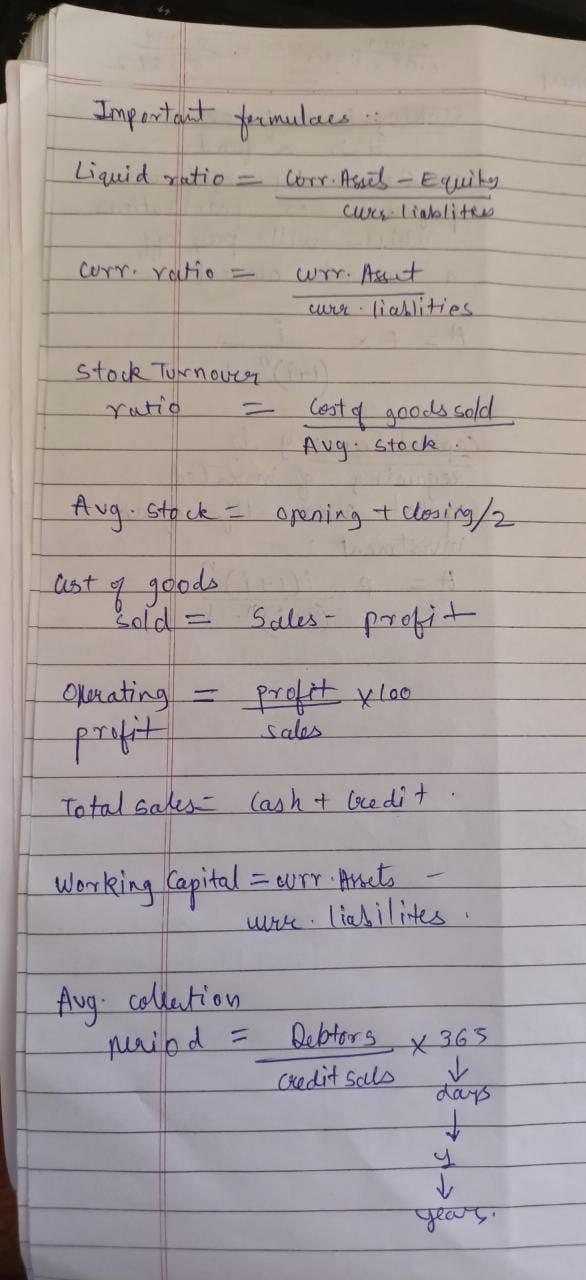 Important formulaes :
Liquid ratio = Corr. Assets - Equity
curr. liablites
Corr. ratio = curr. Asset
curr. liablities
Stock Turnover
ratio = Cost of goods sold
Avg. Stock .
Avg. Stock = opening + closing/2
Cost of goods
Sold = Sales - profit
Operating = profit x 100
profit sales
Total sales = Cash + Credit .
Working Capital = curr. Assets -
curr. liabilites .
Avg. collection
period = Debtors x 365
credit sals ↓
days
↓
1
↓
years.